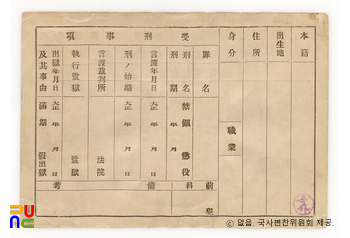 本籍
出生地
住所
身分
職業
受刑事項
罪名
刑名
禁錮 懲役
刑期
年 月
言渡年月日
大正 年 月 日
刑ノ始期
大正 年 月 日
言渡裁判所
法院
執行監獄
監獄
出獄年月日
大正 年 月 日
及其事由
満期 假出獄
前科
犯
備考
© 없음. 국사편찬위원회 제공.